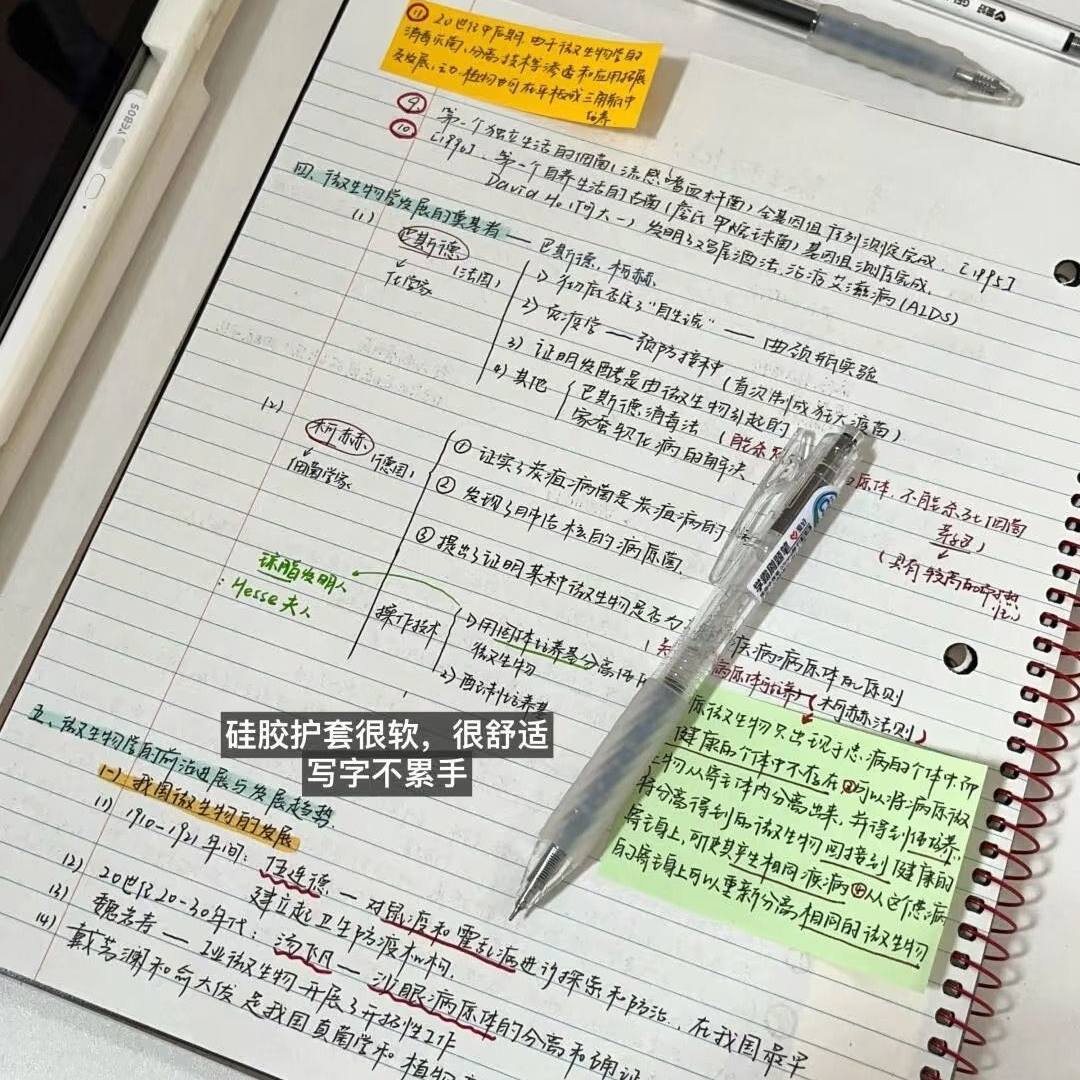 YEBOS
⑪ 20世纪中后期, 由于微生物学的
消毒灭菌、分离技术等渗透和应用拓展
及发展、动·植物也可在平板或三角瓶中
培养
⑨ 第一个独立生活的细菌(流感嗜血杆菌)全基因组序列测定完成. [1995]
⑩ [1996]、第一个自养生活的古菌(詹氏甲烷球菌)基因组测序完成.
David Ho (何大一) 发明了鸡尾酒法, 治疗艾滋病(AIDS)
四、微生物学发展的奠基者 —— 巴斯德、柯赫.
(1) 巴斯德 (法国)
化学家
1) 彻底否定了"自生说" —— 曲颈瓶实验
2) 免疫学 —— 预防接种 (首次制成狂犬疫苗)
3) 证明发酵是由微生物引起的
4) 其他 { 巴斯德消毒法 (
家蚕软化病的解决
原体, 不能杀死细菌
芽孢)
(具有较高的耐热
性)
(2) 柯赫 (德国)
细菌学家
① 证实了炭疽病菌是炭疽病的
② 发现了肺结核的病原菌.
③ 提出了证明某种微生物是否为
疾病病原体的原则
(柯赫法则)
琼脂发明人
Hesse夫人
操作技术
1) 用固体培养基分离
微生物
2) 配制培养基
硅胶护套很软，很舒适
写字不累手
学霸刷题笔
原微生物只出现于患病的个体中, 而
健康的个体中不存在 ② 可以将病原微
生物从寄主体内分离出来, 并得到纯培养.
将分离得到的微生物回接到健康的
寄主身上, 可使其产生相同疾病 ④ 从这个患病
的寄主身上可以重新分离相同的微生物
五、微生物学的前沿进展与发展趋势.
(一) 我国微生物的发展
(1) 1910-1921年间: 伍连德 — 对鼠疫和霍乱病进行探索和防治., 在我国最早
建立起卫生防疫机构.
(2) 20世纪20-30年代: 汤飞凡 — 沙眼病原体的分离和确证
(3) 魏岩寿 — 工业微生物开展了开拓性工作
(4) 戴芳澜和俞大绂是我国真菌学和植物